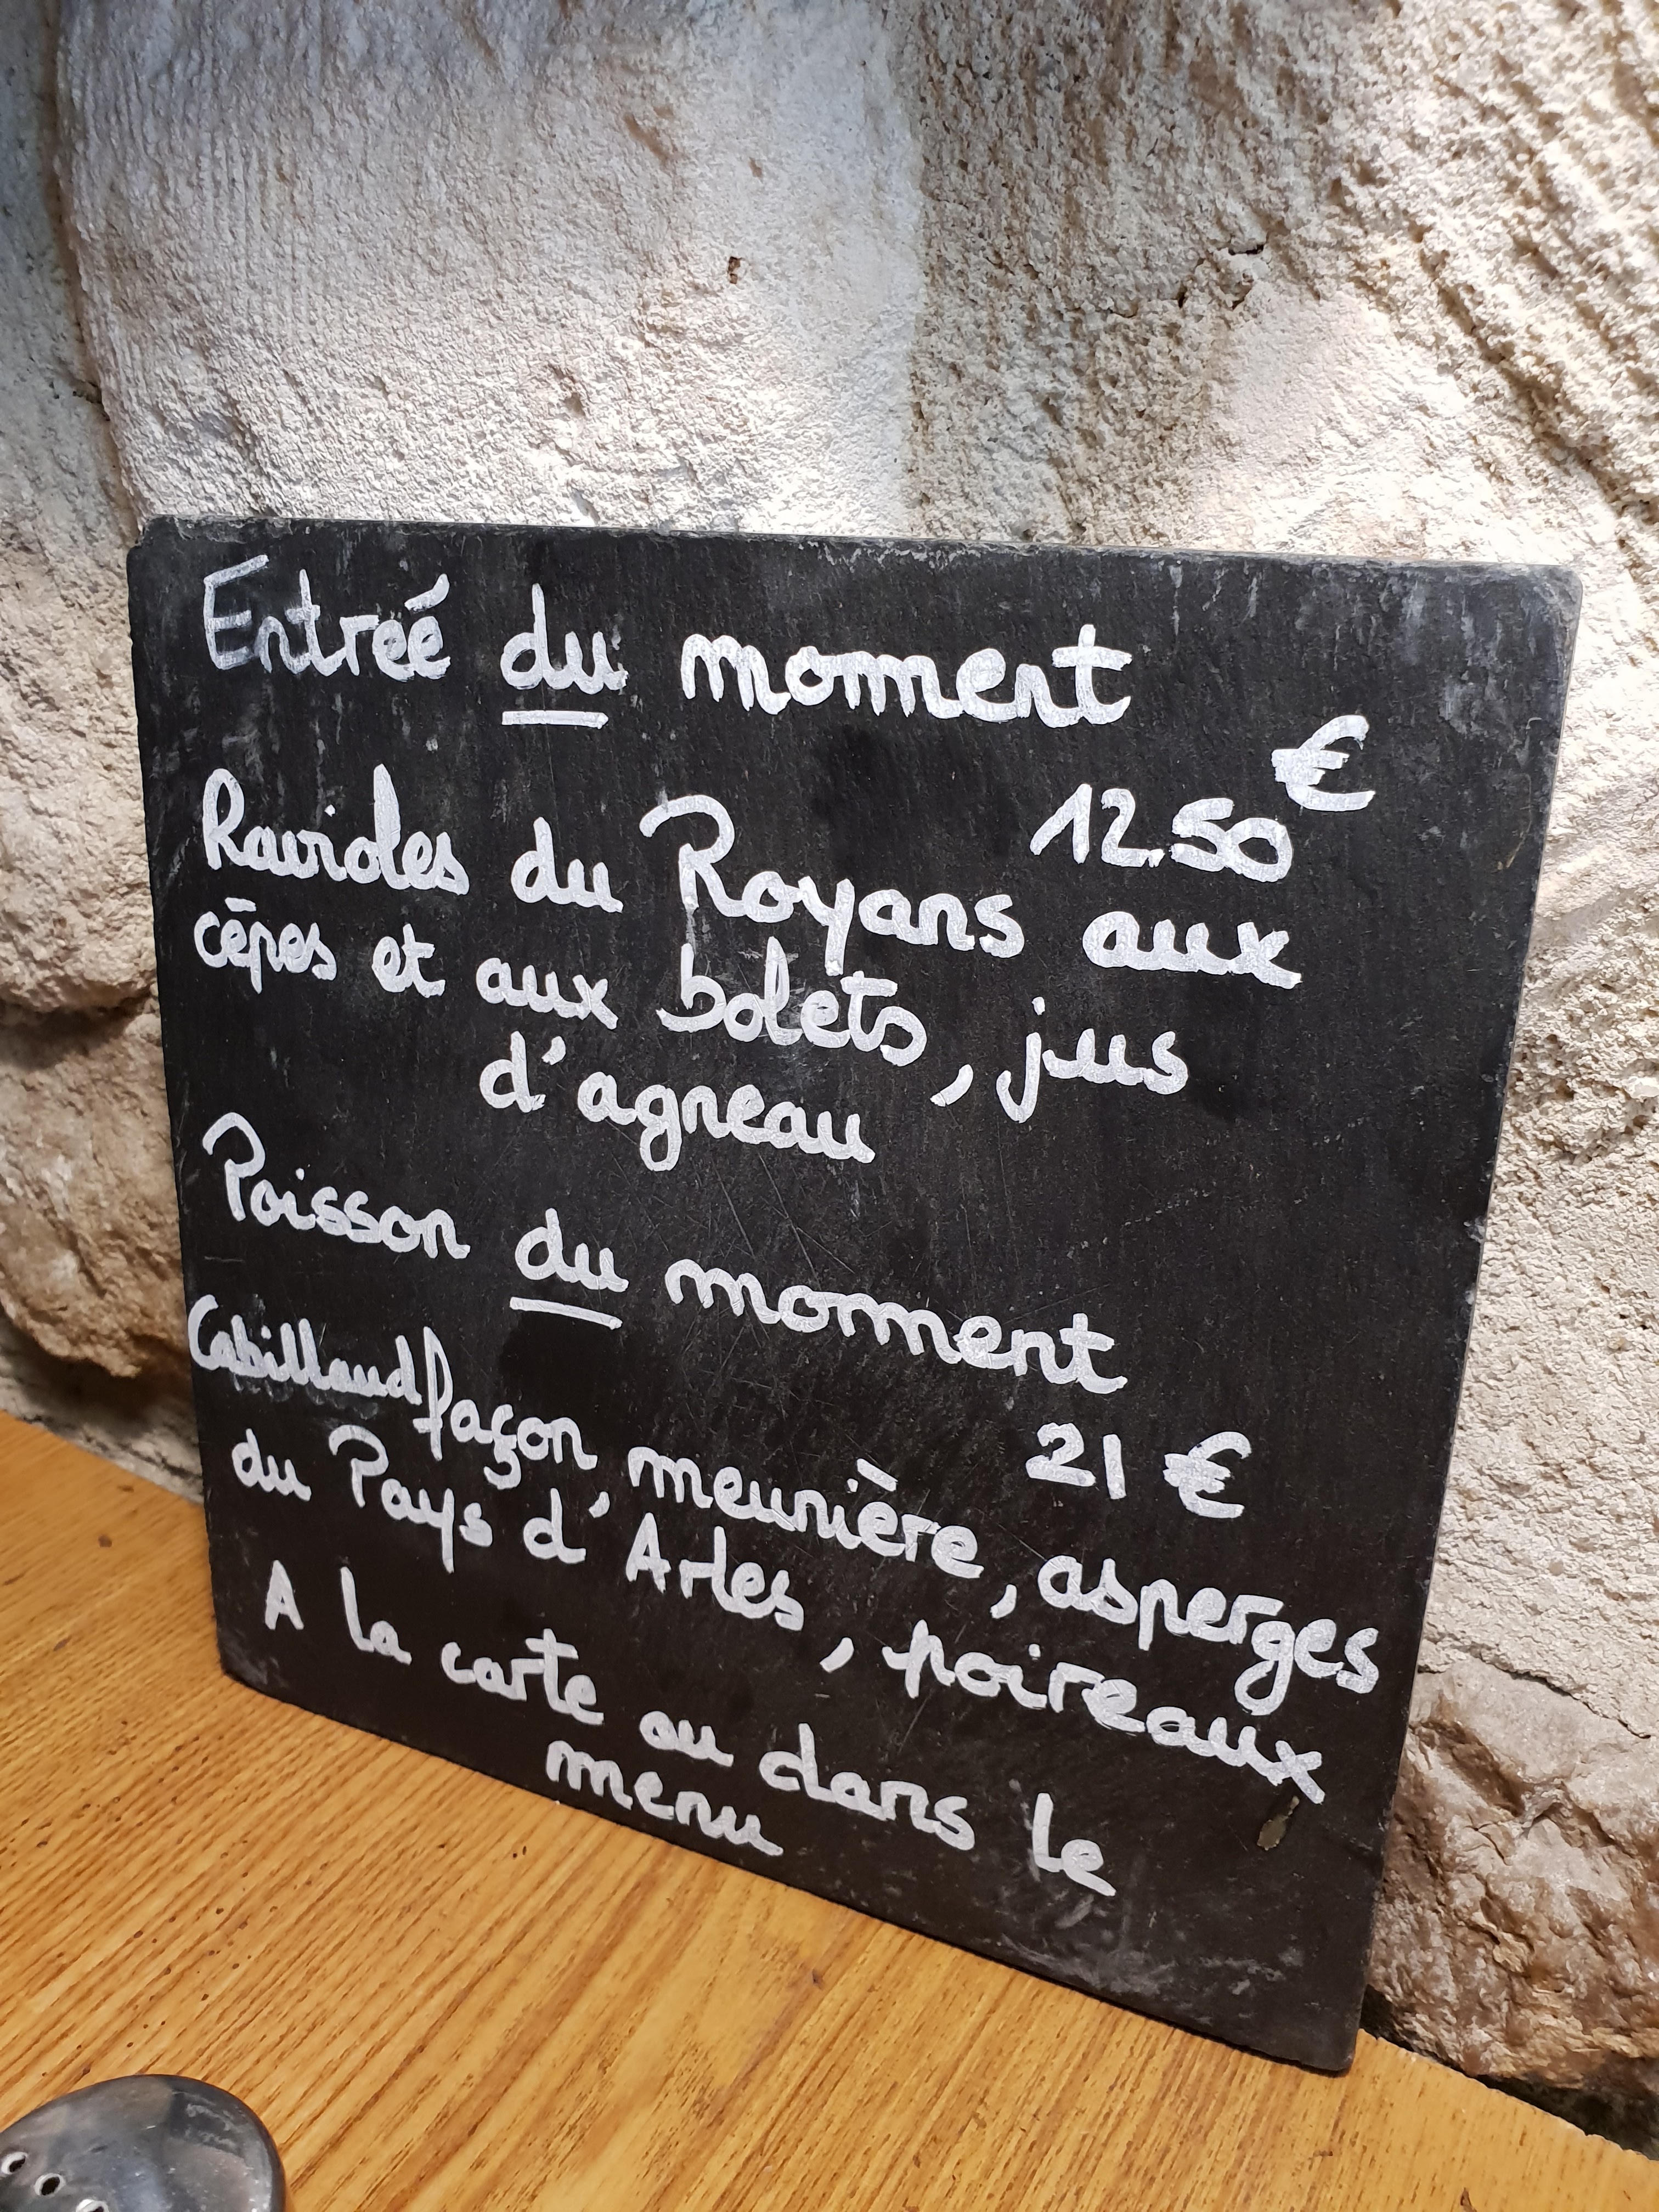 Entreé du moment
12.50€
Ravioles du Royans aux
cēpes et aux bolets, jus
d'agneau
Poisson du moment
21 €
Cabillaud façon meuniēre, asperges
du Pays d'Arles, poireaux
A la carte ou dans le
menu